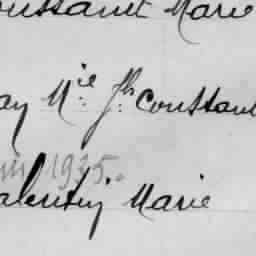 oussaint Marie
ay Mie Jh Constant
in 1935.
alentin Marie